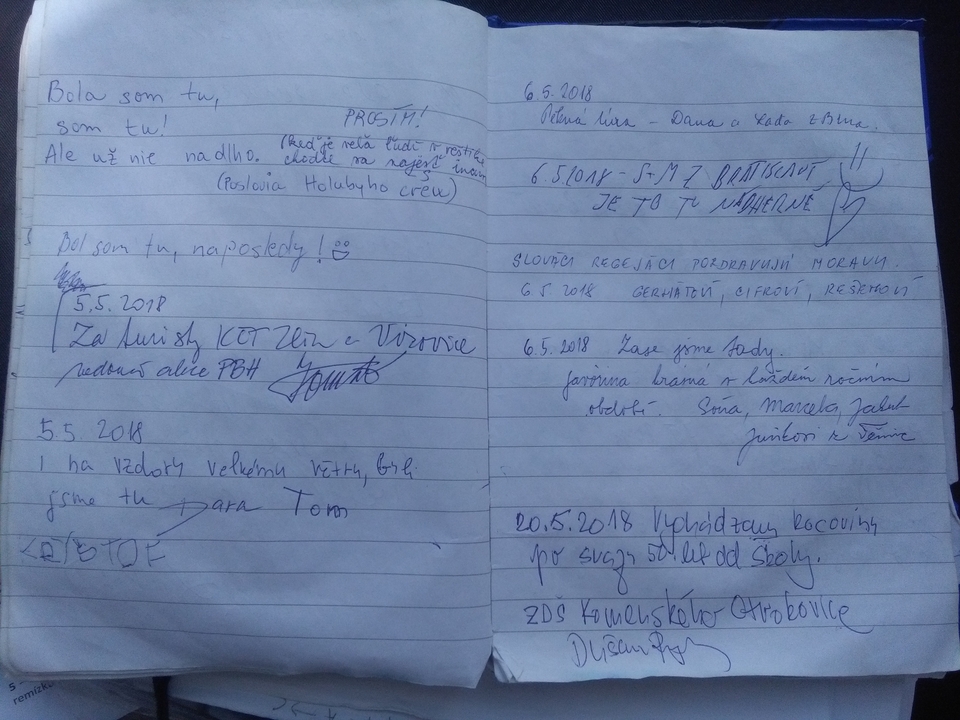 Bola som tu,
som tu!
PROSÍM!
Ale už nie nadlho. (keď je veľa ľudí v
chodte sa najesť
(Poslovia Holubyho crew)
Bol som tu, naposledy!
5.5.2018
Za turisty KČT Zlín a Vizovice
vedoucí akce PBH
5.5 2018
I na vzdory velkému větru, byli
jsme tu Dara Tom
6.5.2018
Dana a Lada z Brna.
6.5.2018 - S+M Z BRATISLAVY !!
JE TO TU NÁDHERNÉ
SLOVÁCI POZDRAVUJÚ MORAVU.
6.5 2018 CIFROVÍ,
6.5.2018 Zase jsme tady.
Javořina krásná v každém ročním
období. Soňa, Marcela, Jakub
Junkovi z
20.5.2018 Vycházíme kocoviny
po srazu 50 let od školy.
ZDŠ Komenského Otrokovice
Dušan
remízk